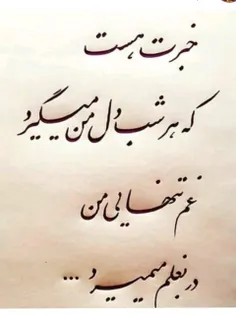 خبرت هست
که هر شب دل من میگیرد
غم تنهایی من
در بغلم میمیرد ...